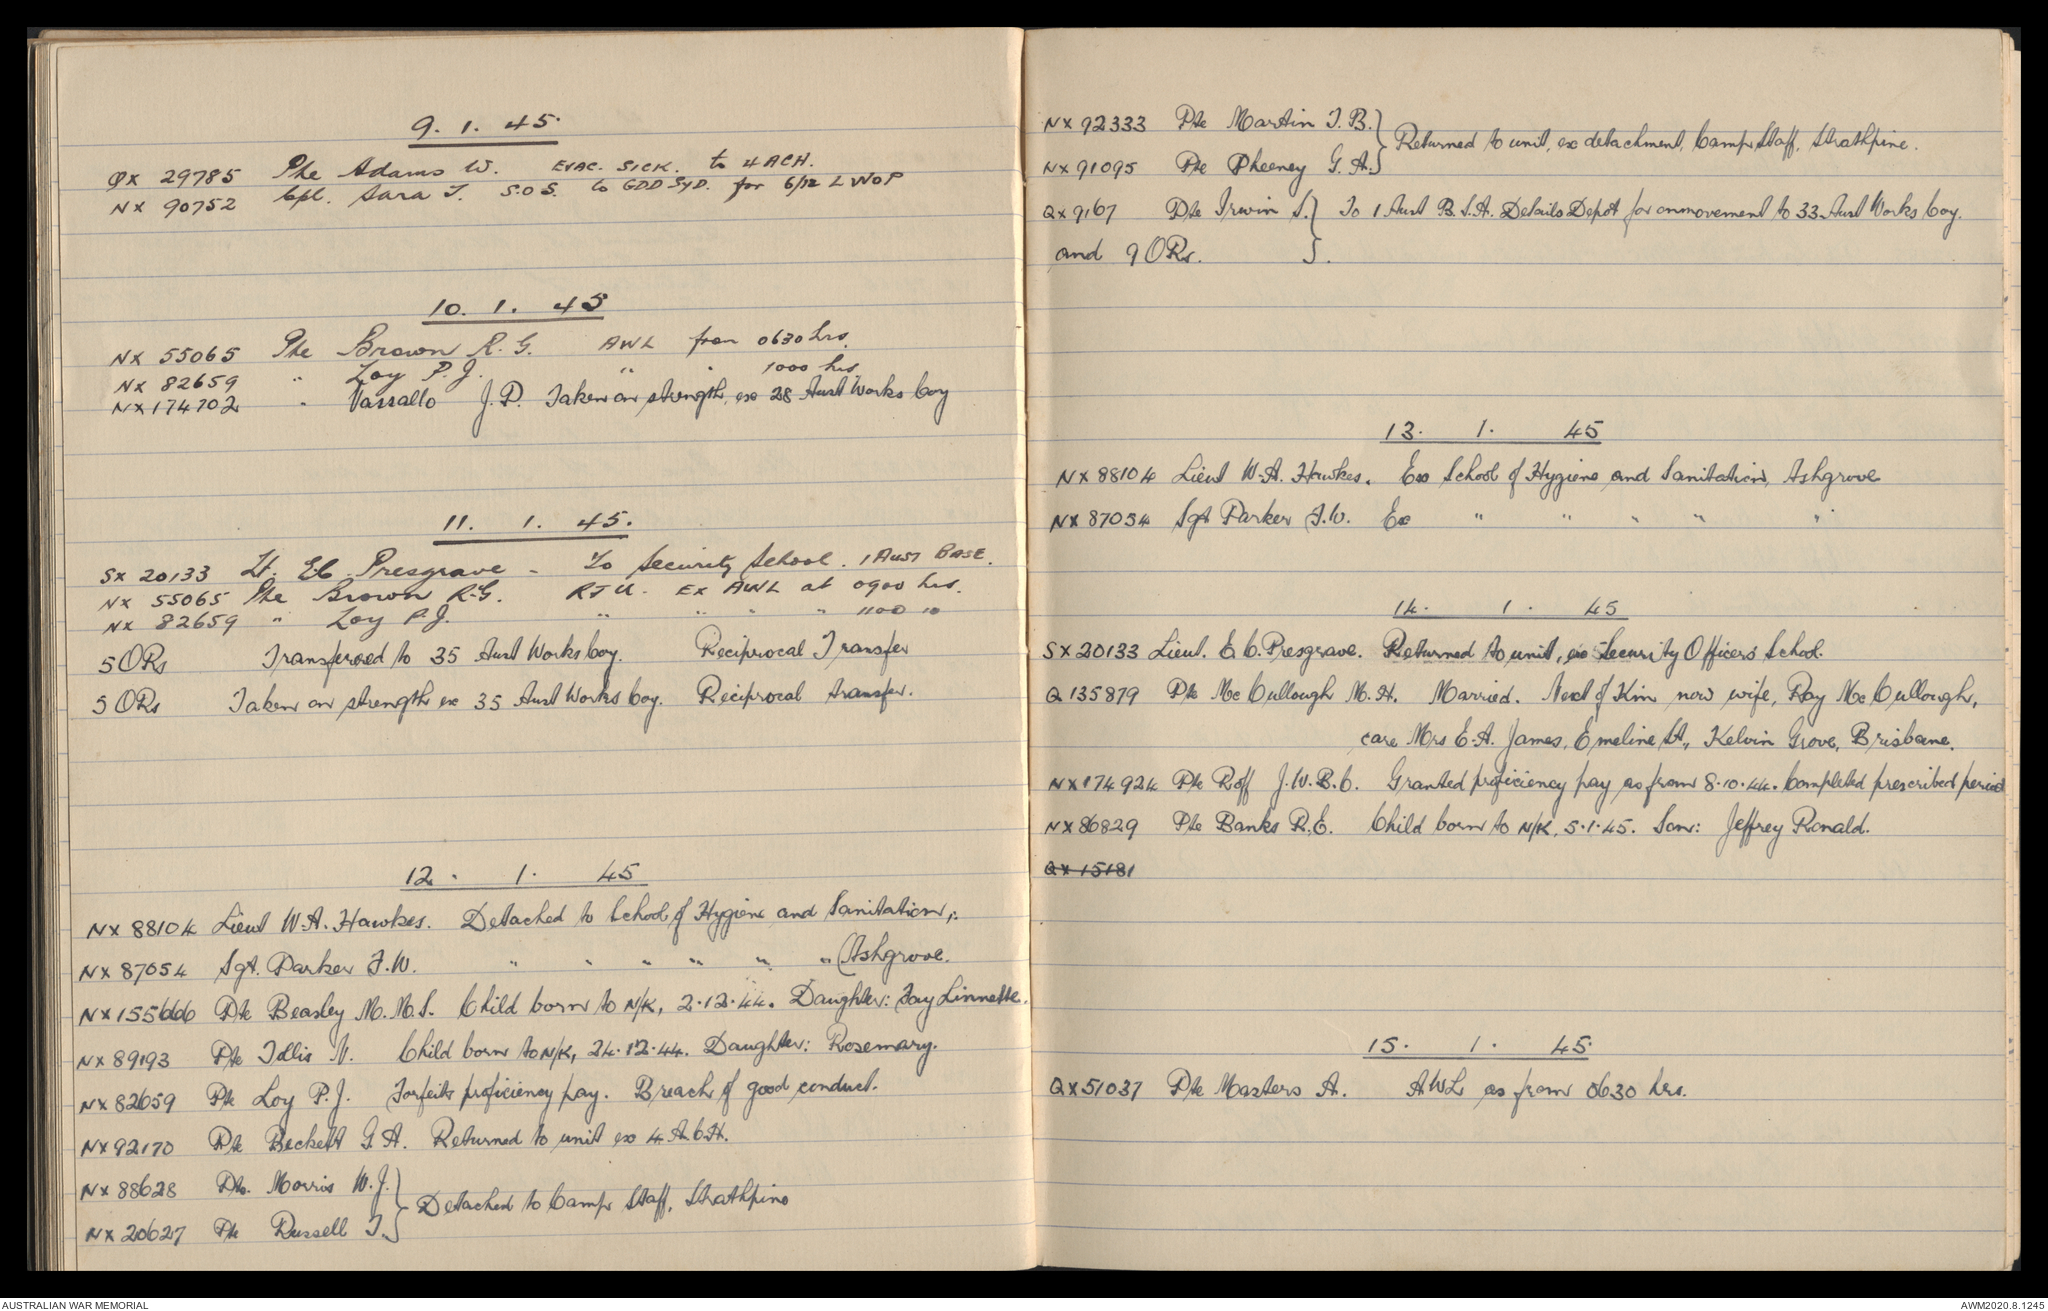 9. 1. 45.
QX 29785 Pte Adams W. EVAC. SICK. to 4 ACH.
NX 90752 Cpl. Sara T. S.O.S. to GDD SYD. for 6/12 LWOP
10. 1. 45
NX 55065 Pte Brown R.G. AWL from 0630 hrs.
NX 82659 " Loy P.J. " " 1000 hrs
NX 174702 " Vassallo J.P. Taken on strength, ex 28 Aust Works Coy
11. 1. 45.
SX 20133 Lt. E.C. Presgrave - To Security School. 1 AUST BASE.
NX 55065 Pte Brown R.G. RTU. EX AWL at 0900 hrs.
NX 82659 " Loy P.J. " " " " 1100 "
5 ORs Transferred to 35 Aust Works Coy. Reciprocal Transfer
5 ORs Taken on strength ex 35 Aust Works Coy. Reciprocal transfer.
12. 1. 45
NX 88104 Lieut W.A. Hawkes. Detached to School of Hygiene and Sanitation,
NX 87054 Sgt. Parker F.W. " " " " " " (Ashgrove.
NX 155666 Pte Beasley M.M.S. Child born to N/K, 2.12.44. Daughter: Fay Linnette.
NX 89193 Pte Tellis N. Child born to N/K, 24.12.44. Daughter: Rosemary.
NX 82659 Pte Loy P.J. Forfeits proficiency pay. Breach of good conduct.
NX 92170 Pte Beckett G.A. Returned to unit ex 4 A.C.H.
NX 88628 Pte. Morris W.J.
NX 20627 Pte Russell T. } Detached to Camp Staff, Strathpine
NX 92333 Pte Martin T.B.
NX 91095 Pte Pheeney G.A. } Returned to unit, ex detachment, Camp Staff, Strathpine.
QX 9167 Pte Irwin S. } To 1 Aust B.S.A. Details Depot for onmovement to 33 Aust Works Coy.
and 9 ORs. }.
13. 1. 45
NX 88104 Lieut W.A. Hawkes. Ex School of Hygiene and Sanitation, Ashgrove
NX 87054 Sgt Parker F.W. Ex " " " " "
14. 1. 45
SX 20133 Lieut. E.C. Presgrave. Returned to unit, ex Security Officers School.
Q 135879 Pte McCullough M.H. Married. Next of Kin now wife, Ray McCullough,
care Mrs E.A. James, Emeline St., Kelvin Grove, Brisbane.
NX 174924 Pte Roff J.W.B.C. Granted proficiency pay as from 8.10.44. Completed prescribed period
NX 86829 Pte Banks R.E. Child born to N/K, 5.1.45. Son: Jeffrey Ronald.
QX 15181
15. 1. 45
QX 51037 Pte Masters A. AWL as from 0630 hrs.
AUSTRALIAN WAR MEMORIAL
AWM2020.8.1245